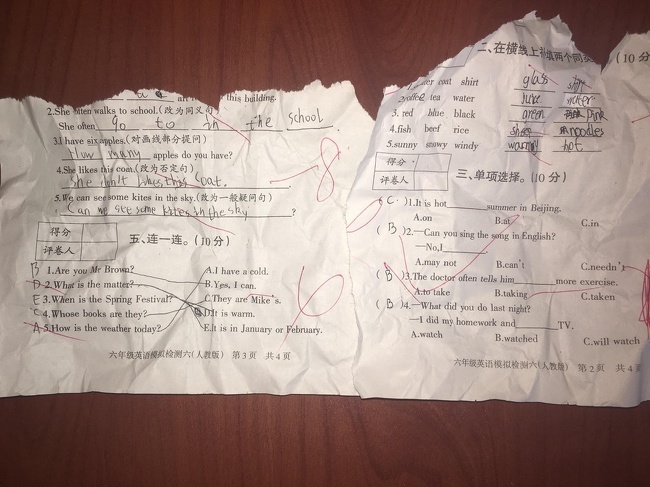 this building.
2.She often walks to school.(改为同义句)
She often go to in the school.
3.I have six apples.(对画线部分提问)
How many apples do you have?
4.She likes this coat.(改为否定句)
She don't likes this coat.
5.We can see some kites in the sky.(改为一般疑问句)
Can we see some kites in the sky?
8
得分
评卷人
五、连一连。(10分)
B 1.Are you Mr Brown? A.I have a cold.
D 2.What is the matter? B.Yes, I can.
E 3.When is the Spring Festival? C.They are Mike's.
C 4.Whose books are they? D.It is warm.
A 5.How is the weather today? E.It is in January or February.
6
六年级英语模拟检测六(人教版) 第3页 共4页
二、在横线上 填两个同 (10分)
coat shirt glass
2.coffee tea water juice water
3.red blue black green pink
4.fish beef rice sheep noodles
5.sunny snowy windy warm hot
得分
评卷人
三、单项选择。(10分)
( C )1.It is hot ______ summer in Beijing.
A.on B.at C.in
( B )2.—Can you sing the song in English?
—No,I ______.
A.may not B.can't C.needn't
( B )3.The doctor often tells him ______ more exercise.
A.to take B.taking C.taken
( B )4.—What did you do last night?
—I did my homework and ______ TV.
A.watch B.watched C.will watch
六年级英语模拟检测六(人教版) 第2页 共4